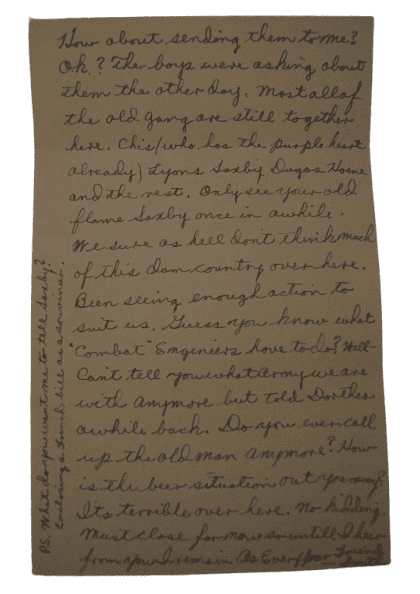 How about sending them to me?
Ok? The boys were asking about
them the other day. Most all of
the old gang are still together
here. Chis (who has the purple heart
already) Lyons Saxby Dugas Horne
and the rest. Only see your old
flame Saxby once in awhile.
We sure as hell don't think much
of this dam country over here.
Been seeing enough action to
suit us. Guess you know what
"Combat" Engineers have to do? Well
Can't tell you what army we are
with anymore but told Dorthea
awhile back. Do you ever call
up the old man anymore? How
is the beer situation out your way?
Its terrible over here. No kidding.
Must close for now so untill I hear
from you I remain As Ever Your Friend
PS. What do you want me to tell Saxby?
Enclosing a French bill as a souvenir.